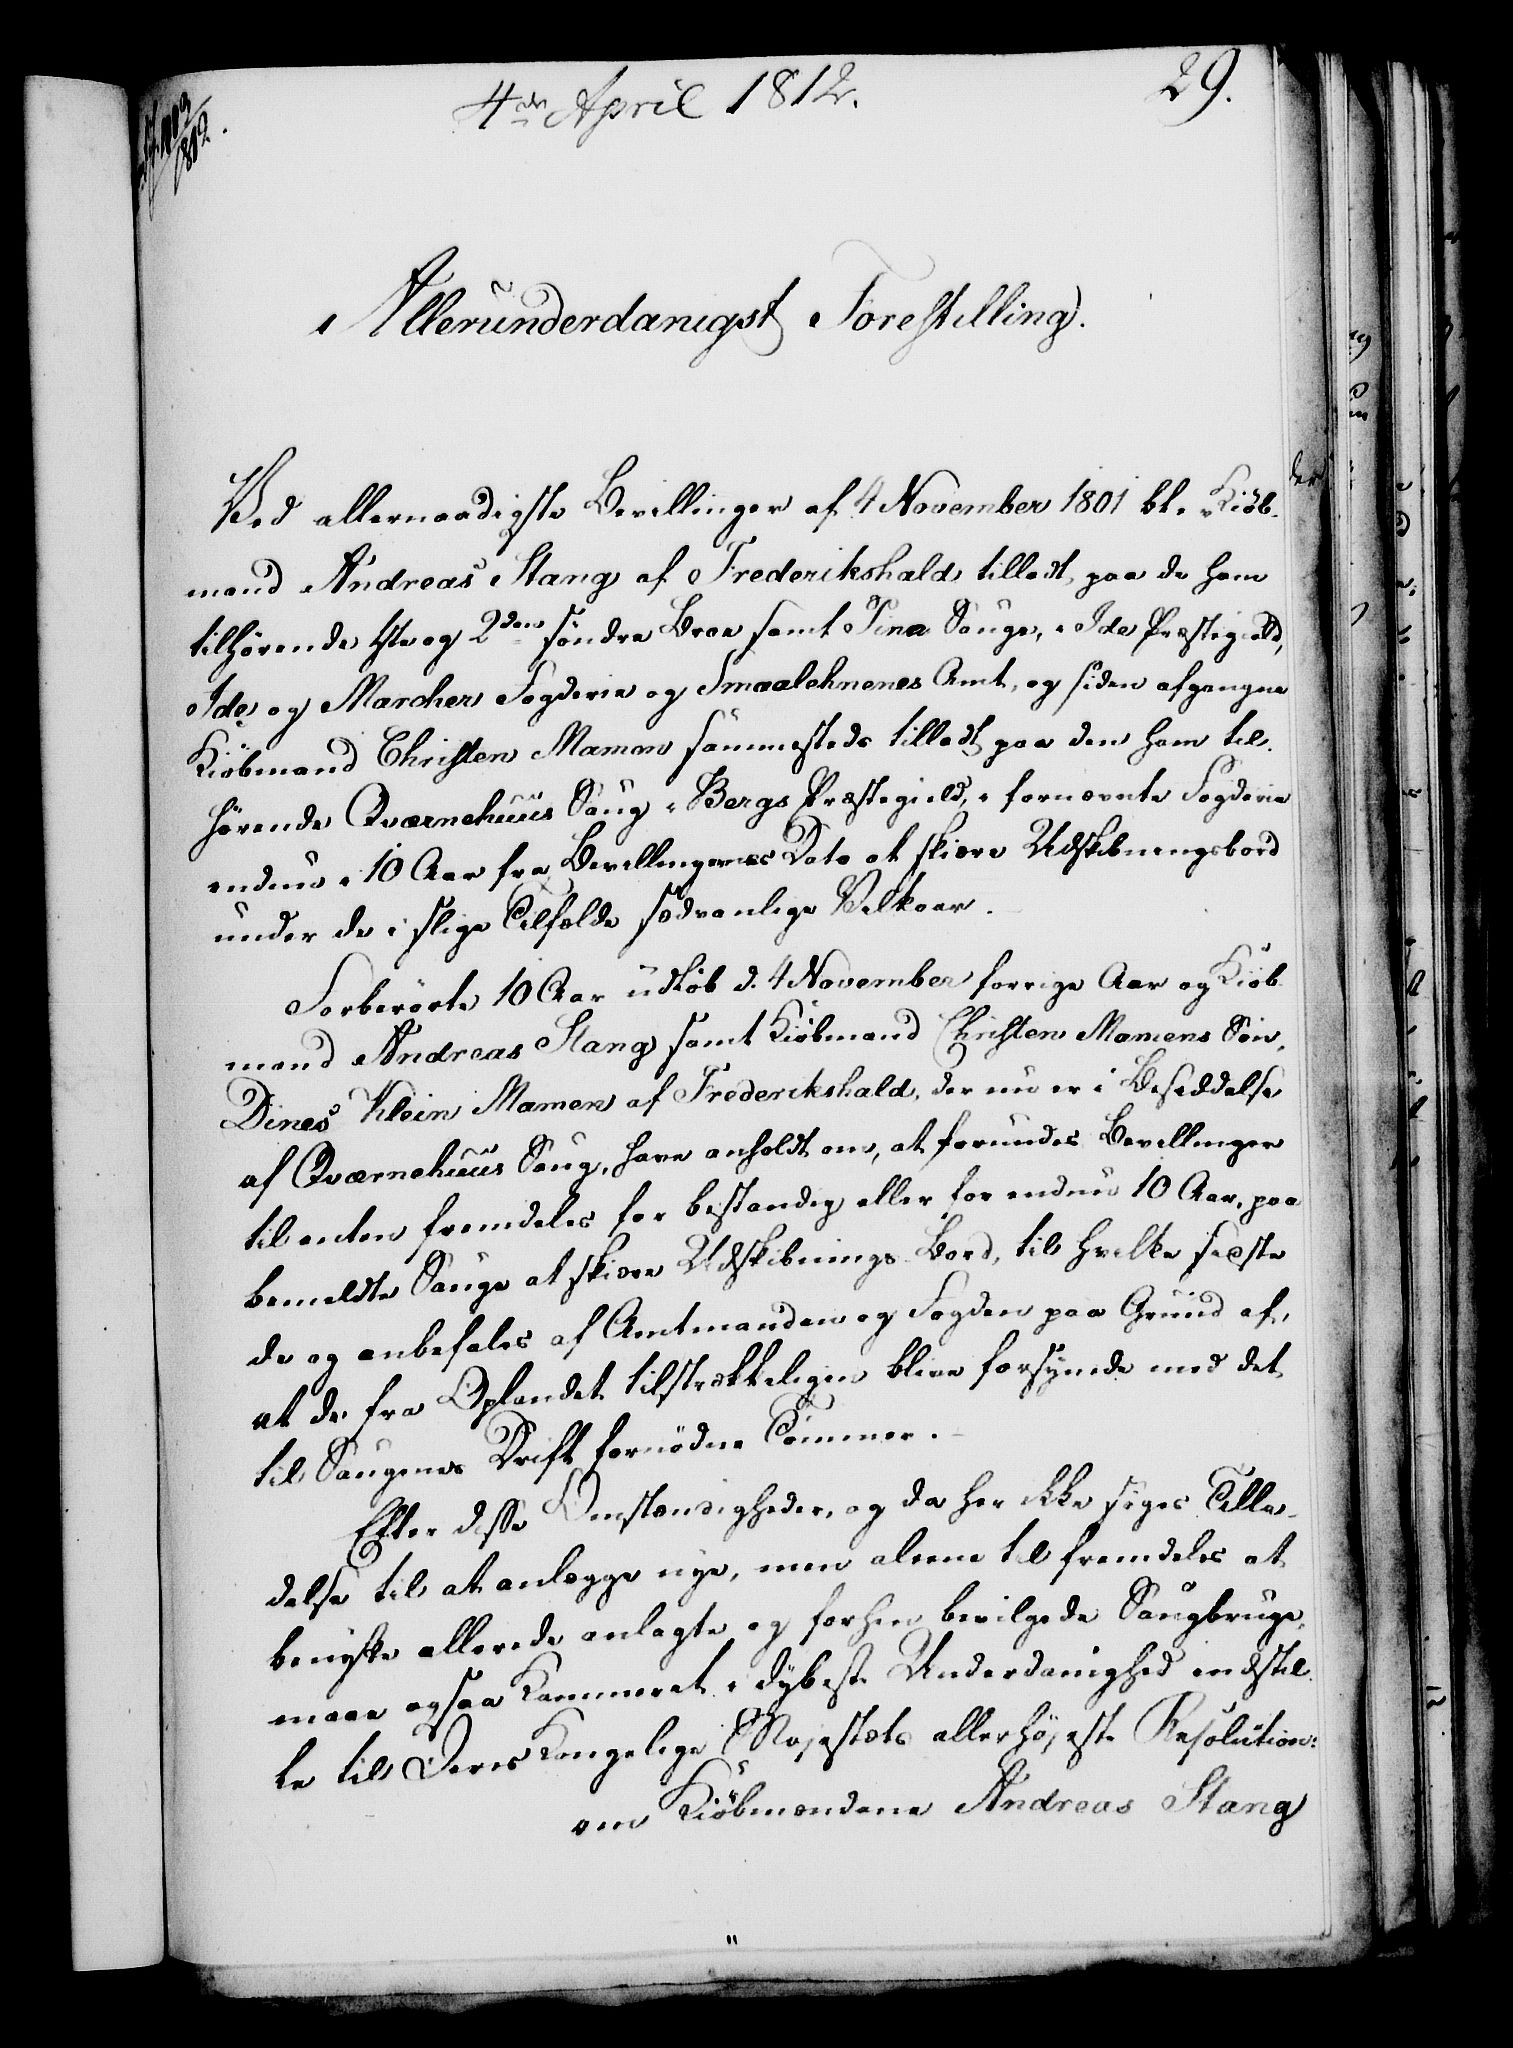 4de April 1812.
29.
Allerunderdanigst Forestilling.
Ved allernaadigste Bevillinger af 4 November 1801 bl. Kiöb-
mand Andreas Stang af Frederikshald tilladt paa de ham
tilhørende 1ste og 2den söndre Broe samt Tina Sauge, i Ide Præstegield,
Ide og Marcher Fogderie og Smaalehnenes Amt, og siden afgangne
Kiöbmand Christen Mamen sammesteds tilladt paa den ham til-
hørende Qværnehuus Saug i Bergs Præstegield, i fornævnte Fogderie
endnu i 10 Aar fra Bevillingernes Dato at skiære Udskibningsbord
under de i slige Tilfælde sædvanlige Vilkaar.
Forberörte 10 Aar udlöb d. 4 November forrige Aar og Kiöb-
mand Andreas Stang samt Kiöbmand Christen Mamens Sön,
Dines Klein Mamen af Frederikshald, der nu er i Besiddelse
af Qværnehuus Saug, have anholdt om, at forundes Bevillinger
til enten fremdeles for bestandig eller for endnu 10 Aar, paa
bemeldte Sauge at skiære Udskibnings-Bord, til hvilke sidste
de og anbefales af Amtmanden og Fogden paa Grund af,
at de fra Oplandet tilstrækkeligen blive forsynede med det
til Saugenes Drift fornödne Tömmer.
Efter disse Omstændigheder, og da her ikke søges Tilla-
delse til at anlægge nye, men alene til fremdeles at
benytte allerede anlagte og forhen bevilgede Saugbruge,
maae ogsaa Kammeret i dybeste Underdanighed indstil-
le til Deres Kongelige Majestæts allerhöjeste Resolution:
om Kiöbmændene Andreas Stang